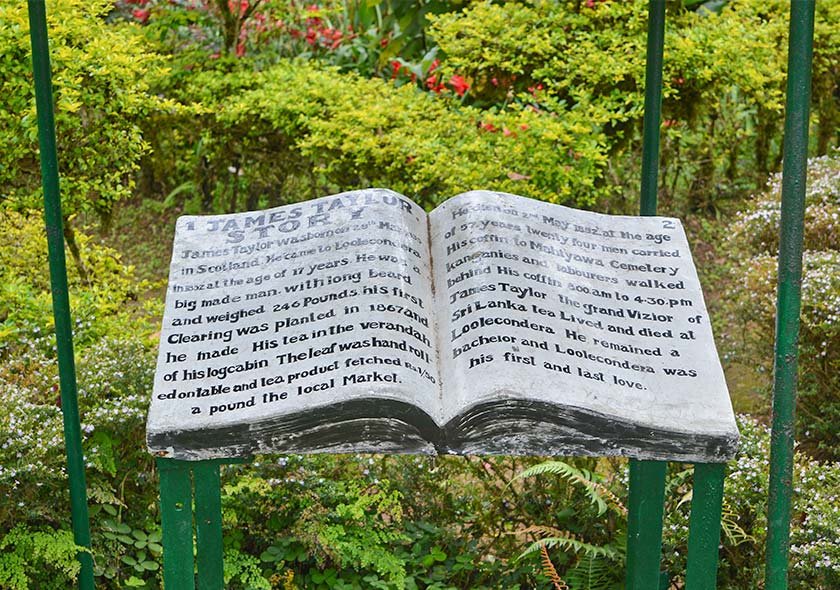 1 JAMES TAYLOR
STORY
James Taylor was born on 29th March
in Scotland. He came to Loolecondera
in 1852 at the age of 17 years. He was a
big made man, with long beard
and weighed 246 Pounds, his first
Clearing was planted in 1867 and
he made His tea in the verandah
of his logcabin The leaf was hand roll-
ed on table and tea product fetched rs 1/50
a pound the local Market.
2
He died on 2nd May 1892 at the age
of 57, years twenty four men carried
His coffin to Mahiyawa Cemetery
kanganies and labourers walked
behind His coffin 8.00.am to 4-30.pm
James Taylor the grand Vizior of
Sri Lanka tea Lived and died at
Loolecondera. He remained a
bachelor and Loolecondera was
his first and last love.